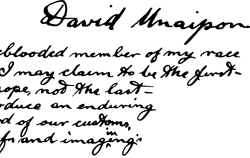 David Unaipon
blooded member of my race
I may claim to be the first-
ope, not the last-
oduce an enduring
d of our customs,
fs and imagining: